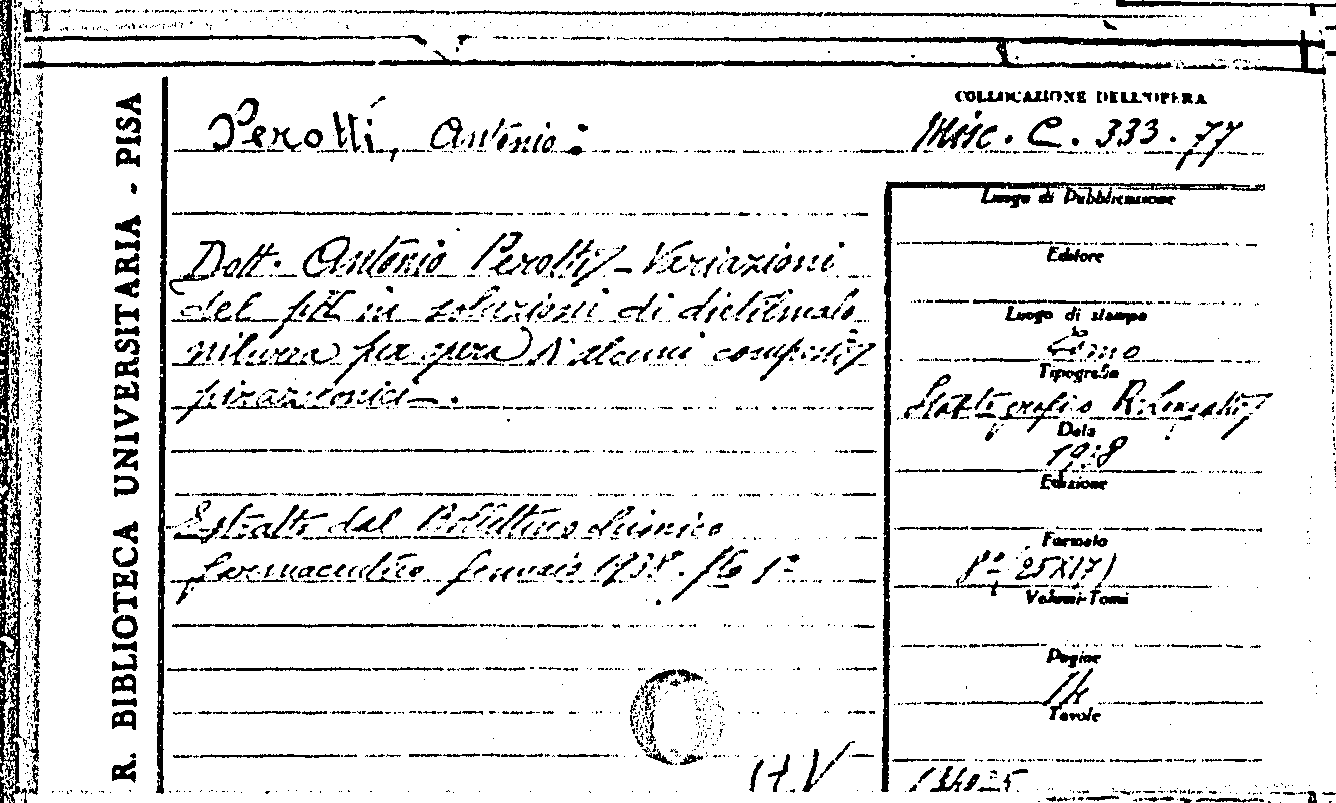 R. BIBLIOTECA UNIVERSITARIA - PISA
Perotti, Antonio:
COLLOCAZIONE DELL'OPERA
Misc. C. 333. 77
Dott. Antonio Perotti - Variazioni
del pH in soluzioni di dietilmalo
nilurea per opera d'alcuni composti
pirazolonici.
Estratto dal Bollettino chimico
farmaceutico gennaio 1938.
Luogo di Pubblicazione
Editore
Luogo di stampa
Como
Tipografia
Data
1938
Edizione
Formato
8º (25X17)
Volumi-Tomi
Pagine
14
Tavole